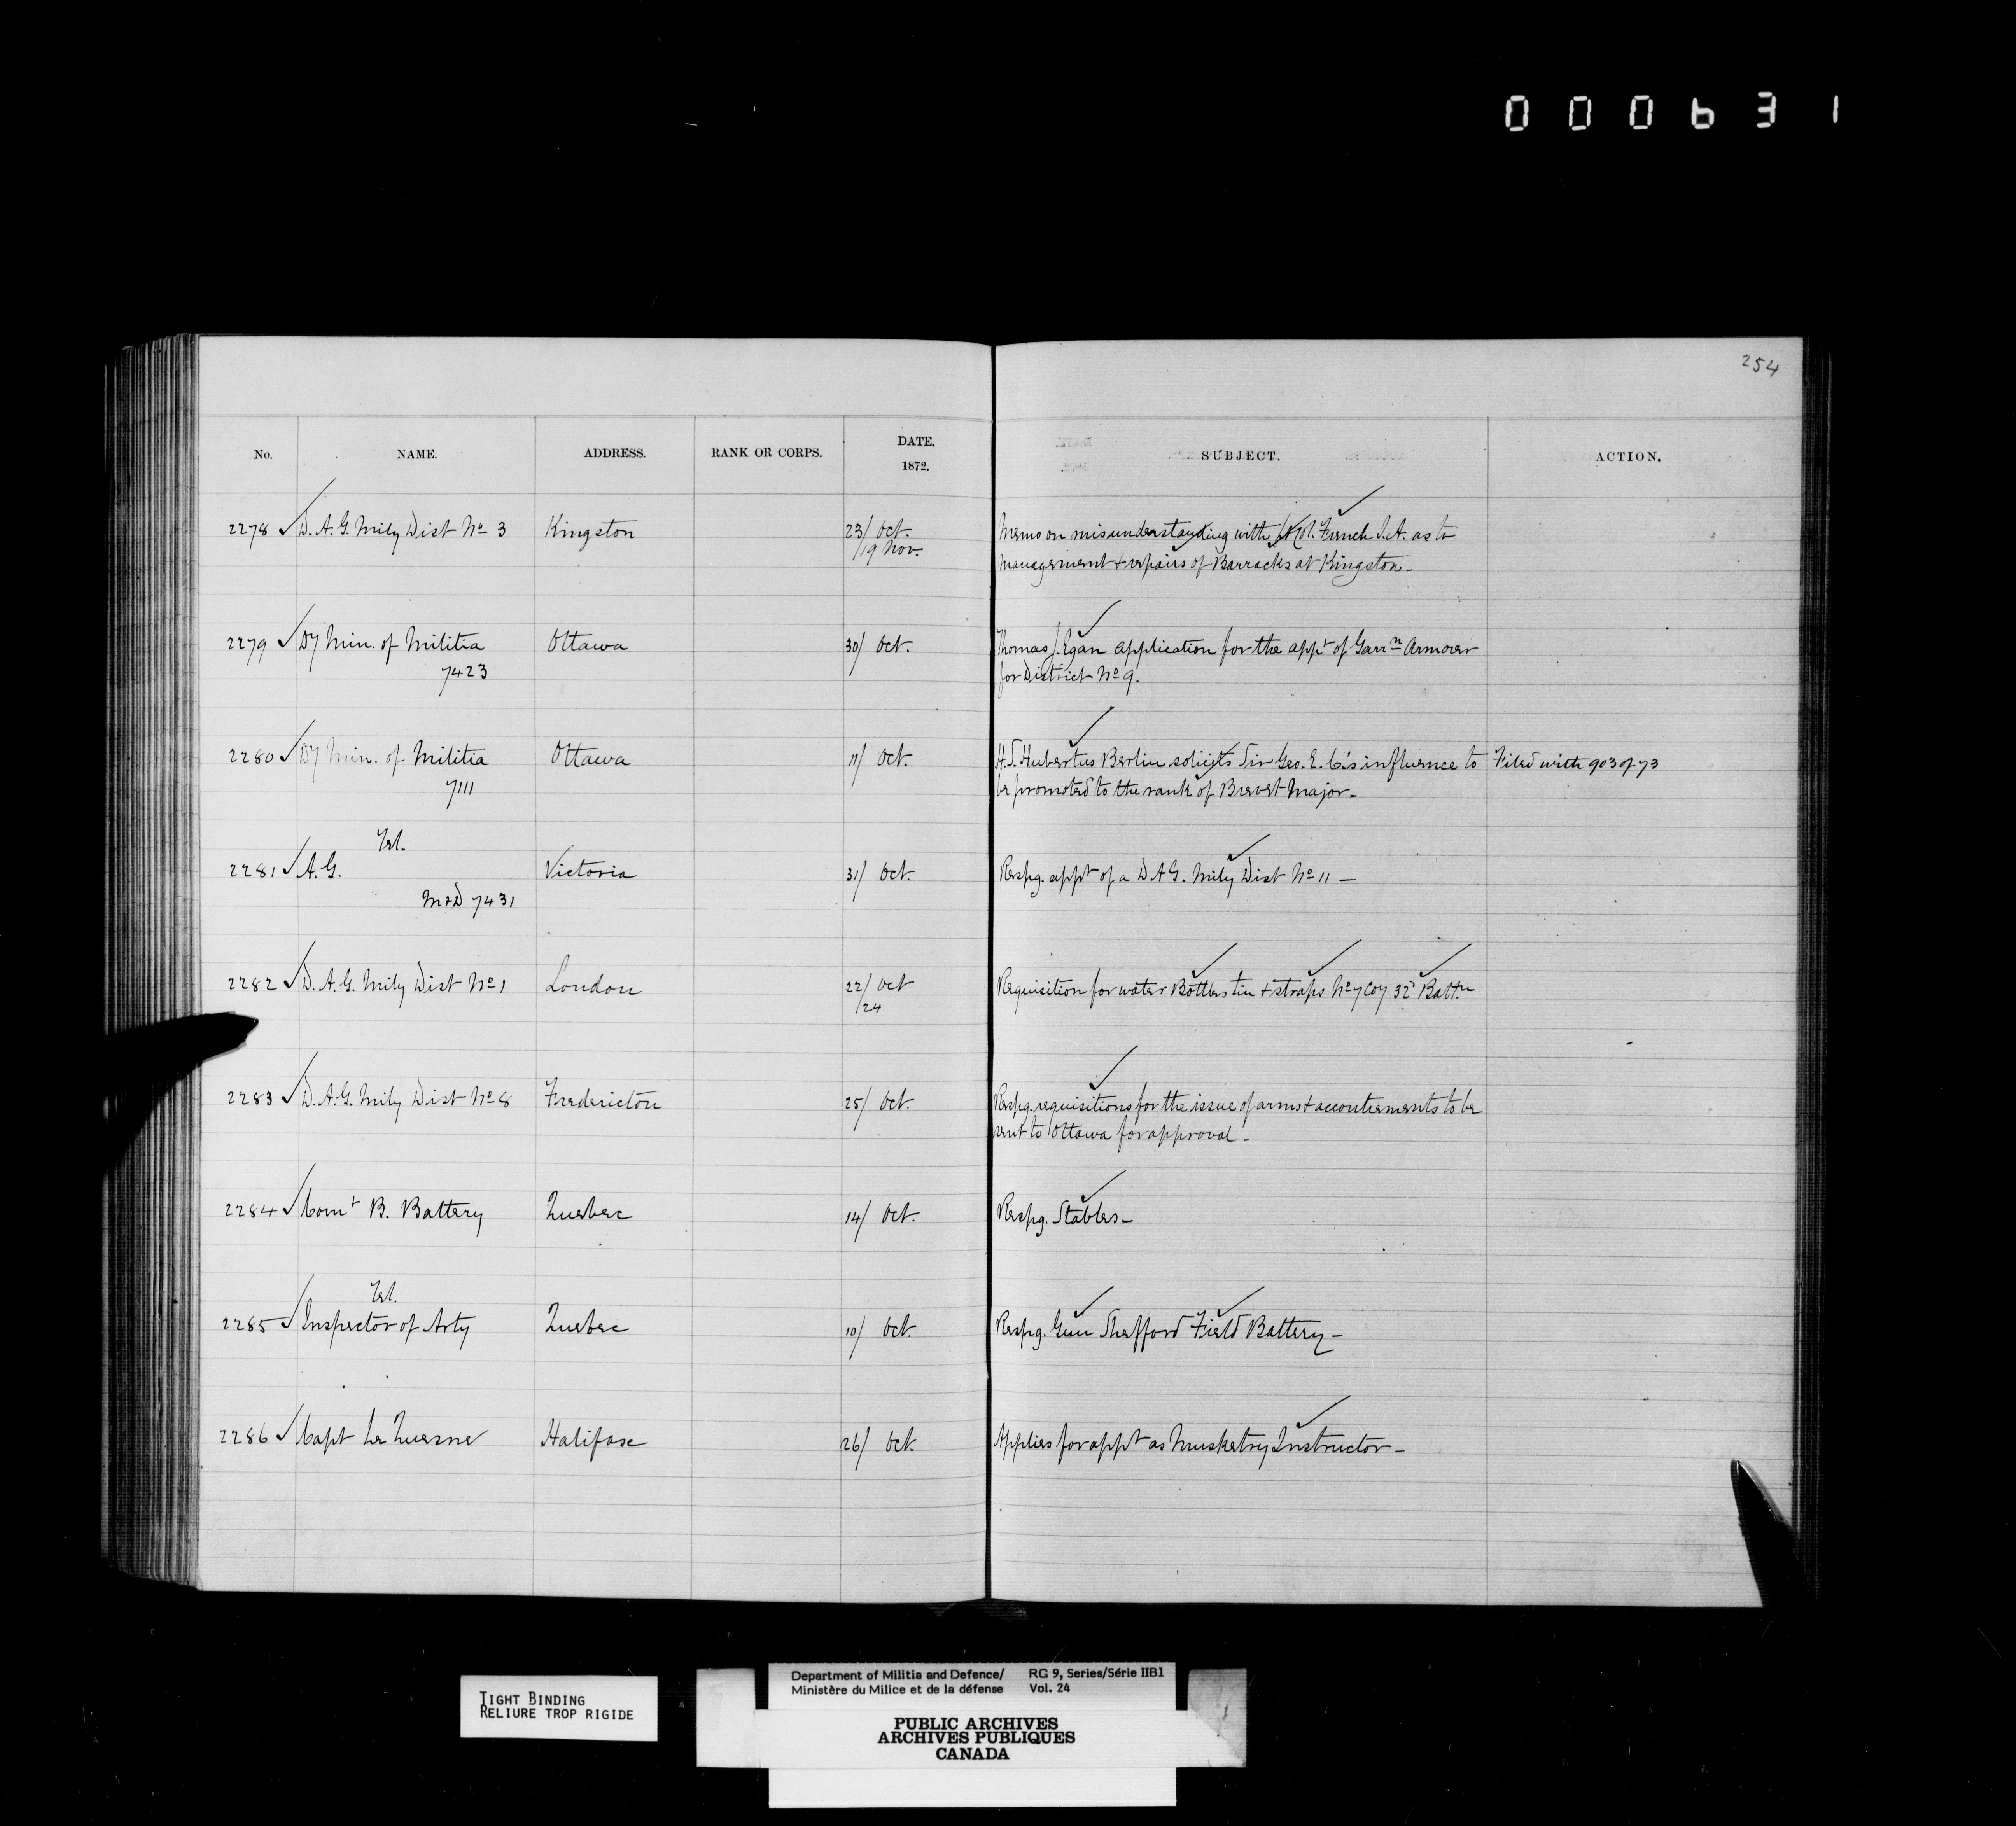 000631
254
No. NAME. ADDRESS. RANK OR CORPS. DATE. 1872. SUBJECT. ACTION.
2278 D. A. G. Mily Dist No 3 Kingston 23/ Oct. Memo on misunderstanding with Col. French I.A. as to
/19 Nov. management + repairs of Barracks at Kingston -
2279 Dy Min. of Militia Ottawa 30/ Oct. Thomas J. Egan application for the appt of Garrn Armourer
7423 for District No 9.
2280 Dy Min. of Militia Ottawa 11/ Oct. H.S. Hubertus Berlin solicits Sir Geo. E. C's influence to Filed with 903 of 73
7111 be promoted to the rank of Brevet Major -
Tel.
2281 A. G. Victoria 31/ Oct. Respg. appt of a D A G. Mily Dist No 11 -
M+D 7431
2282 D. A. G. Mily Dist No 1 London 22/ Oct Requisition for water Bottles tin + straps No 7 Coy 32 Battn
/24
2283 D. A. G. Mily Dist No 8 Fredericton 25/ Oct. Respg. requisitions for the issue of arms + accoutrements to be
sent to Ottawa for approval -
2284 Comt B. Battery Quebec 14/ Oct. Respg. Stables -
Tel.
2285 Inspector of Arty Quebec 10/ Oct. Respg. Gun Shefford Field Battery -
2286 Capt Le Quesne Halifax 26/ Oct. Applies for appt as Musketry Instructor -
TIGHT BINDING
RELIURE TROP RIGIDE
Department of Militia and Defence/ RG 9, Series/Série IIB1
Ministère du Milice et de la défense Vol. 24
PUBLIC ARCHIVES
ARCHIVES PUBLIQUES
CANADA